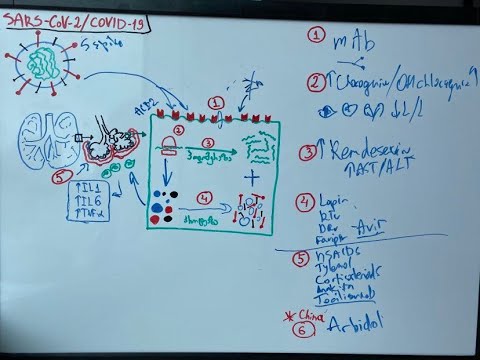 SARS-CoV-2/COVID-19
S spike
ACE2
1
2
3
4
5
↑IL1
↑IL6
↑TNFα
1 mAb
2 ↑Choroquin/OH chloroquin
3 ↑Remdesevir
↑AST/ALT
4 Lopin
Rtv
Drv -Avir
5 NSAIDs
Tylenol
Corticosteroids
Anakinra
Tocilizumab
* China
6 Arbidol